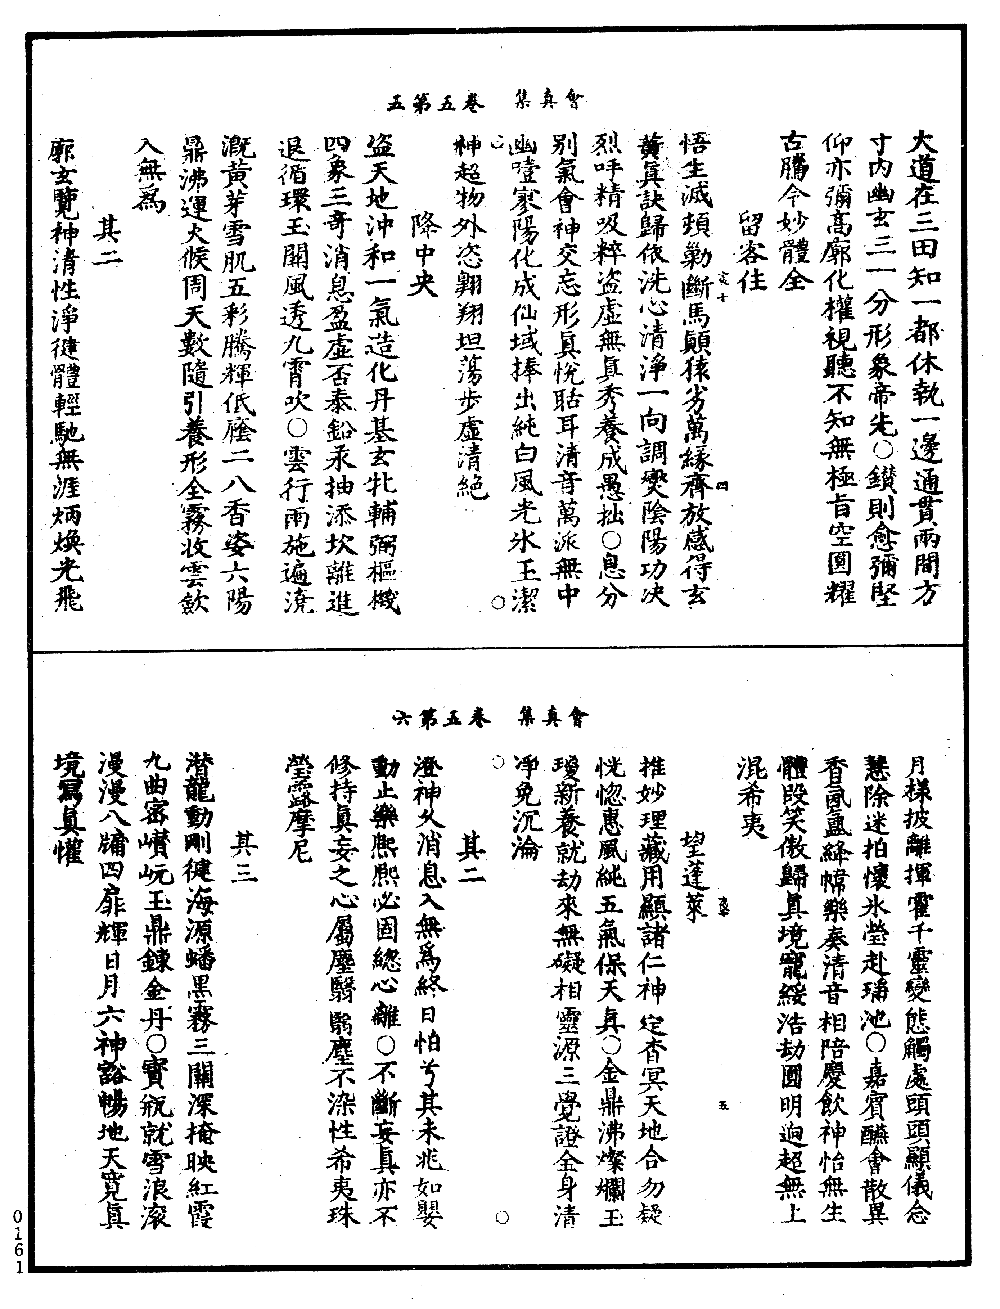 會真集　卷五第五
大道在三田知一都休執一邊通貫兩間方
寸內幽玄三一分形象帝先〇鑚則愈彌堅
仰亦彌高廓化權視聽不知無極旨空圓耀
古騰今妙體全
留客住
悟生滅頓勤斷馬顛猿劣萬緣齊放感得玄
黃真訣歸依洗心清淨一向調燮陰陽功決
烈呼精吸粹盜虛無真秀養成愚拙〇息分
別氣會神交忘形真悅聒耳清音萬派無中
幽噎寂陽化成仙域捧出純白風光氷玉潔
神超物外恣翺翔坦蕩步虛清絕
降中央
盜天地沖和一氣造化丹基玄牝輔弼樞機
四象三奇消息盈虛否泰鉛汞抽添坎離進
退循環玉關風透九霄吹〇雲行雨施遍澆
溉黃芽雪肌五彩騰輝低𨻶二八香姿六陽
鼎沸運火候周天數隨引養形全霧收雲歛
入無為
其二
廓玄覽神清性淨徤體輕馳無涯炳煥光飛
會真集　卷五第六
月樣披離揮霍千靈變態觸處頭頭顯儀念
慧除迷拍懷氷瑩赴瑤池〇嘉賓醼會散異
香氤氳絳幃樂奏清音相陪慶飲神怡無生
體段笑傲歸真境寵綏浩劫圓明逈超無上
混希夷
望蓬萊
推妙理藏用顯諸仁神定杳冥天地合勿疑
恍惚惠風純五氣保天真〇金鼎沸燦爛玉
瓊新養就劫來無礙相靈源三覺證全身清
淨免沉淪
其二
澄神久消息入無為終日怕兮其未兆如嬰
動止樂熈熈必固緫心離〇不斷妄真亦不
修持真妄之心屬塵翳翳塵不染性希夷珠
瑩露摩尼
其三
潛龍動剛徤海源蟠黑霧三關深掩映紅霞
九曲密巑岏玉鼎鍊金丹〇寶瓶就雪浪滚
漫漫八牖四扉輝日月六神豁暢地天寬真
境寫真懽
0161